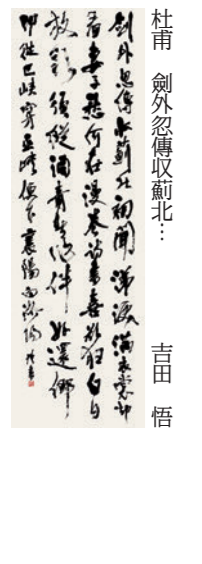 杜甫 劍外忽傳収薊北… 吉田 悟
劍外忽傳収薊北初聞涕涙満衣裳却
看妻子愁何在漫巻詩書喜欲狂白日
放歌須縦酒青春作伴好還郷
即従巴峡穿巫峡便下襄陽向洛陽